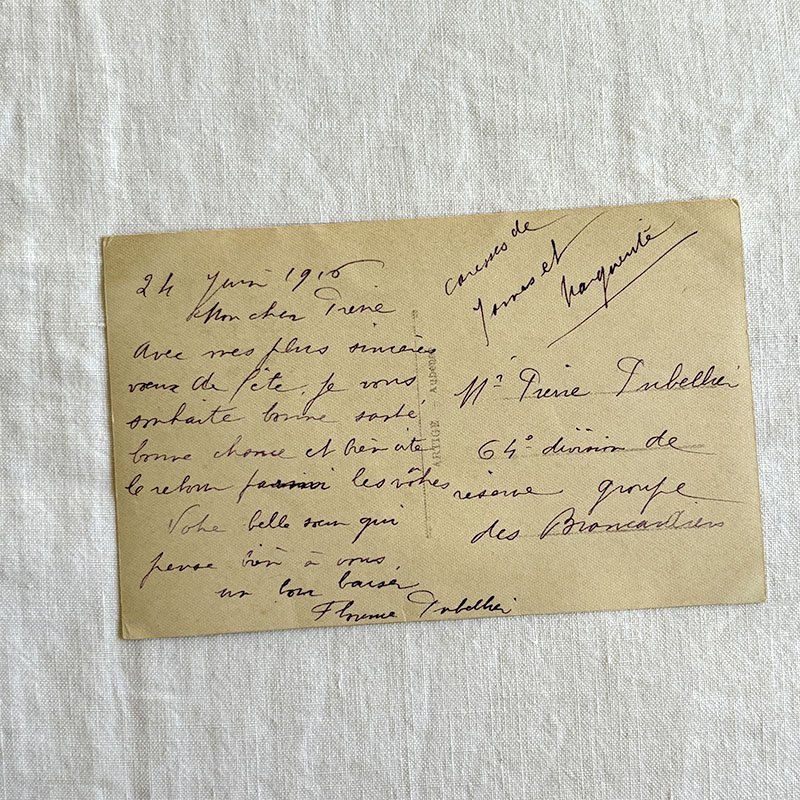 24 Juin 1916
Mon cher Pierre
Avec mes plus sincères
vœux de fête, je vous
souhaite bonne santé,
bonne chance et bien vite
le retour parmi les vôtres
Votre belle sœur qui
pense bien à vous,
un bon baiser
Dubellier
caresses de
et
Marguerite
ARTIGE
Mr Pierre Dubellier
64e division de
réserve groupe
des Brancardiers